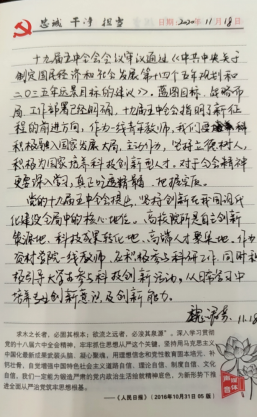 忠诚 干净 担当
日期: 2020年11月18日
十九届五中全会会议审议通过《中共中央关于
制定国民经济和社会发展第十四个五年规划和
二〇三五年远景目标的建议》，蓝图目标，战略布
局，工作部署已经明确，十九届五中全会指明了新征
程的前进方向，作为一线青年教师，我们要
积极融入国家发展大局，主动作为，坚持立德树人，
积极为国家培养科技创新型人才，对于全会精神
更要深入学习，真正吃透精髓，把握实质。
党的十九届五中全会提出，坚持创新在我国现代
化建设全局中的核心地位。高校院所是自主创新
策源地、科技成果转化地、高端人才聚集地。作为
资材学院一线教师，应积极参与科研工作，同时积
极引导大学生参与科技创新活动，从日常学习中
培养其创新意识及创新能力。
11.18
求木之长者，必固其根本；欲流之远者，必浚其泉源”。深入学习贯彻
党的十八届六中全会精神，牢牢抓住思想从严这个关键，坚持用马克思主义
中国化最新成果武装头脑、凝心聚魂，用理想信念和党性教育固本培元、补
钙壮骨，自觉增强中国特色社会主义道路自信、理论自信、制度自信、文化
自信，我们一定能为锻造严肃的党内政治生活给前精神底色，为新形势下推
进全面从严治党筑牢思想根基。
——《人民日报》(2016年10月31日 05版)